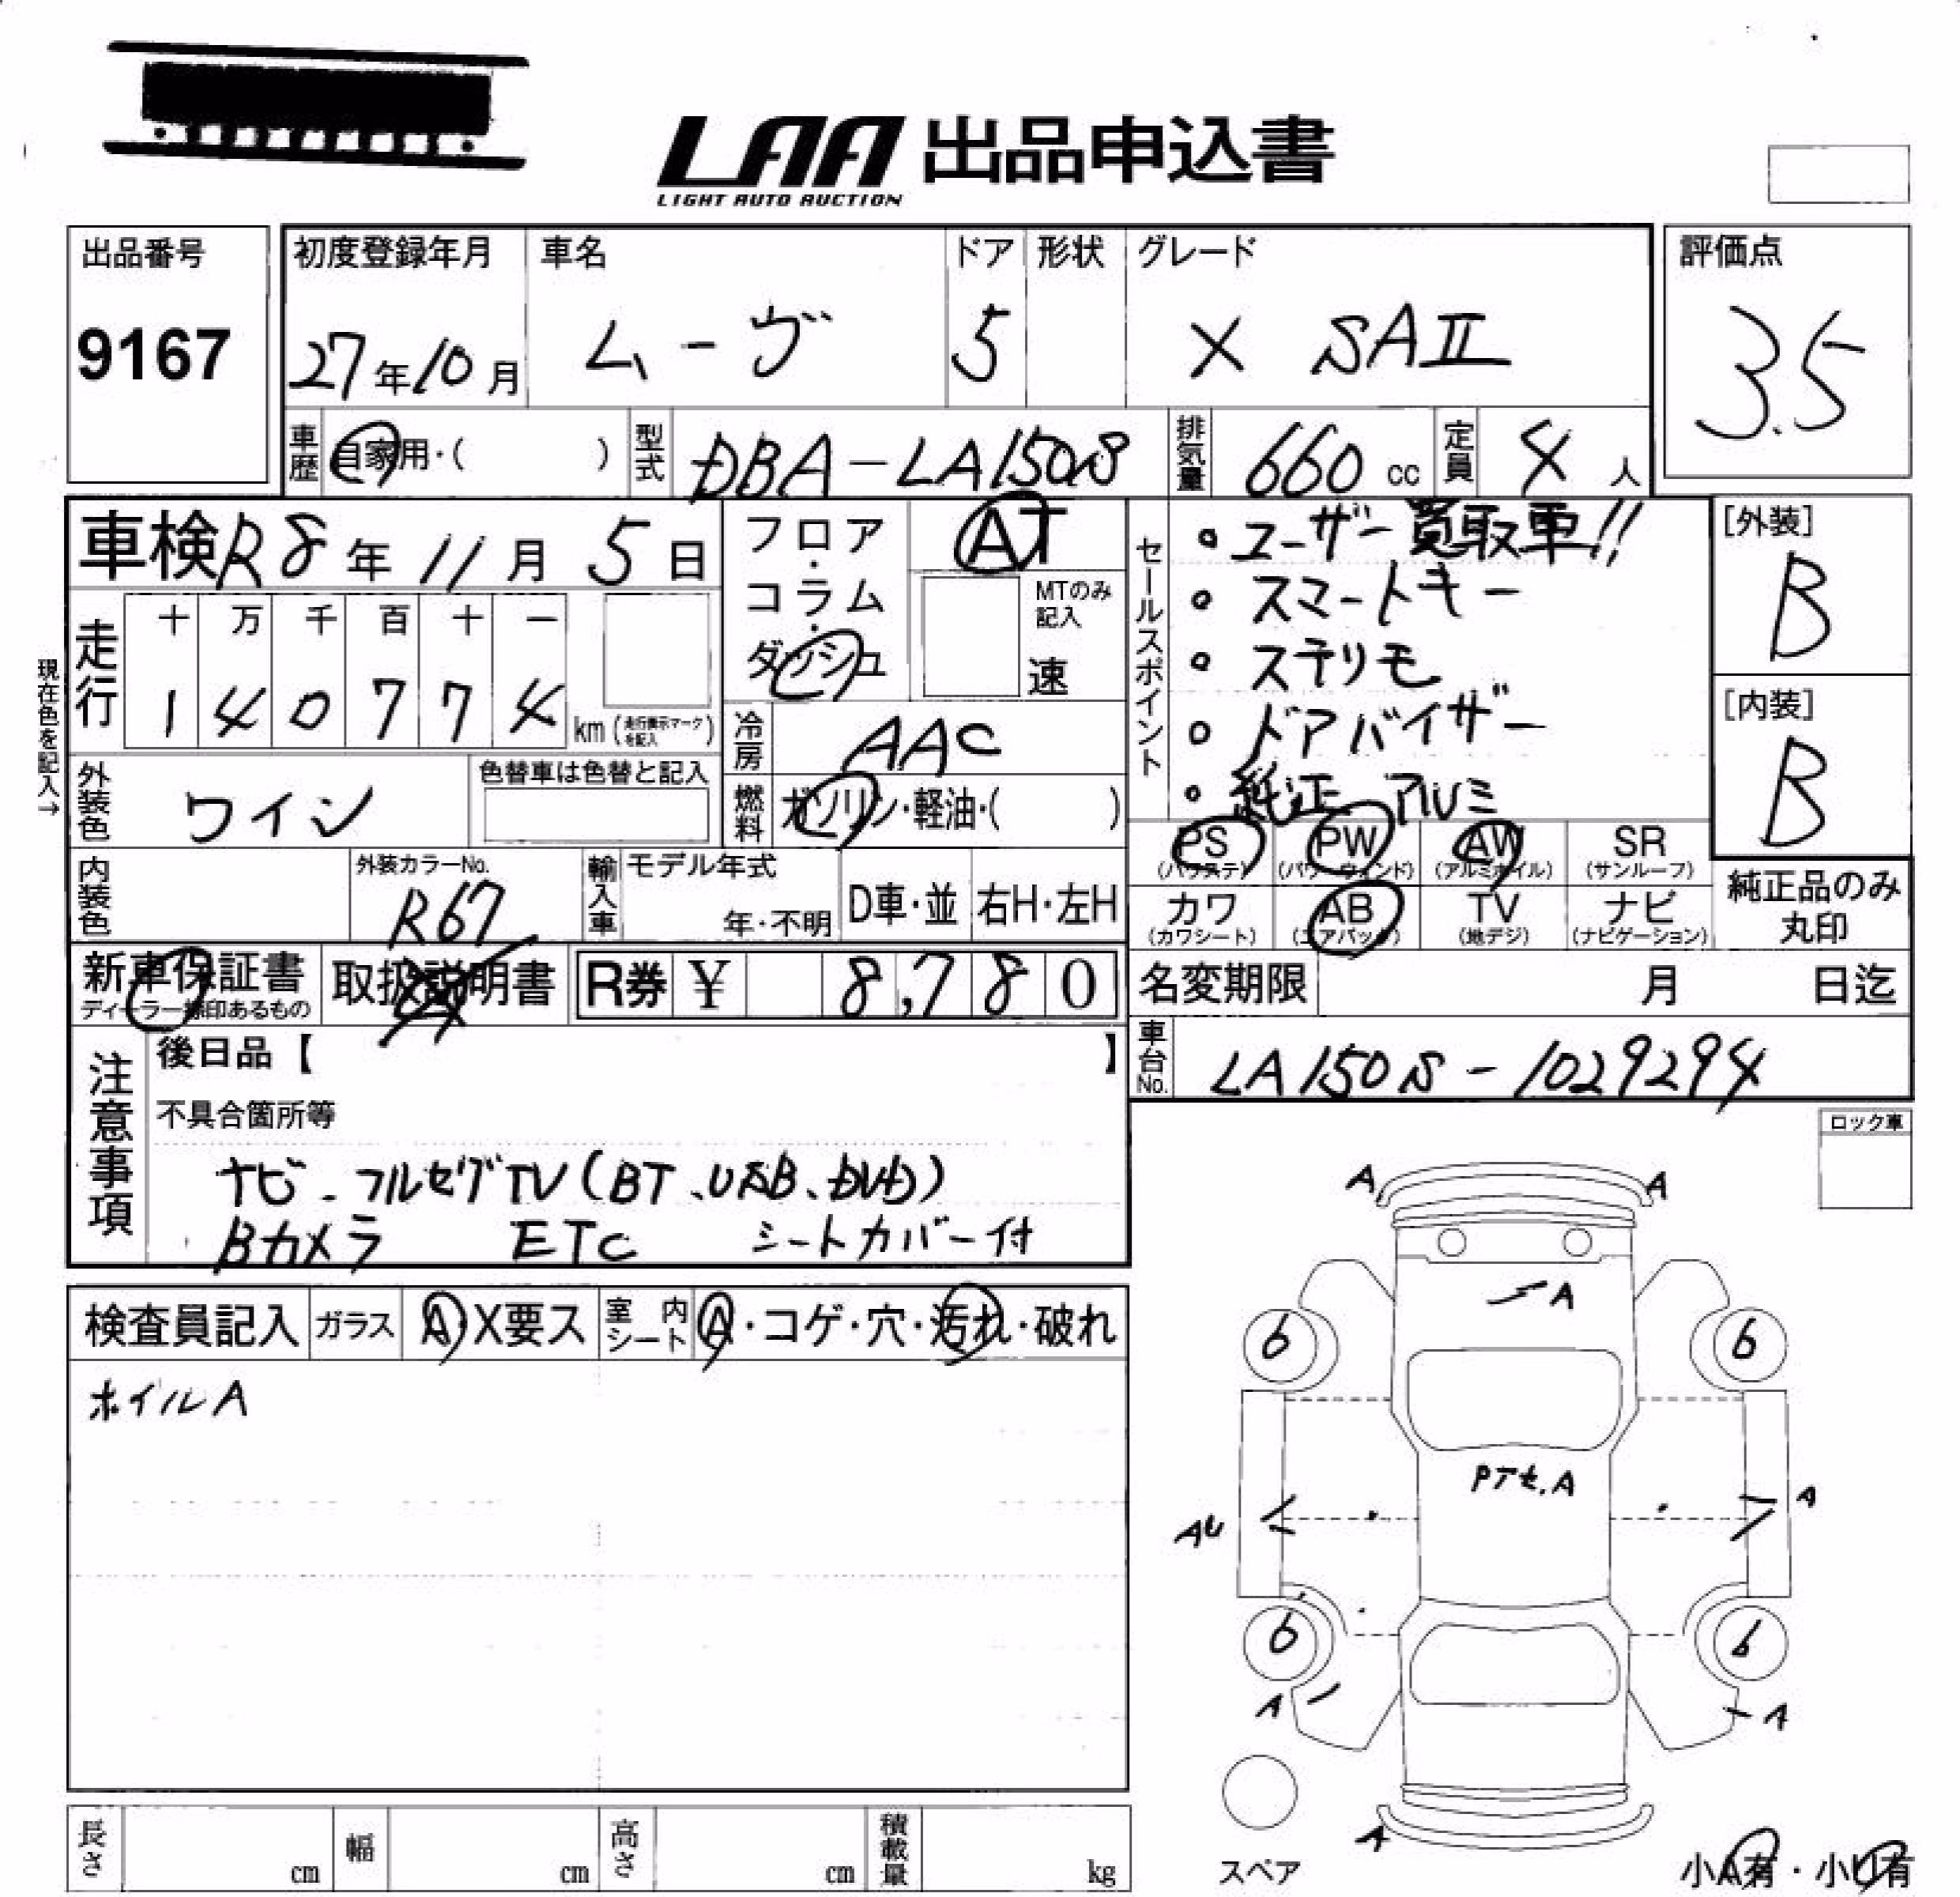 LAA 出品申込書
LIGHT AUTO AUCTION
出品番号
9167
初度登録年月
27年10月
車名
ムーヴ
ドア
5
形状
グレード
X SAII
評価点
3.5
車歴 自家用・( )
型式 DBA-LA150S
排気量 660 cc
定員 4 人
車検 R8年 11月 5日
フロア・コラム・ダッシュ
AT
MTのみ記入
速
現在色を記入→
走行
十 万 千 百 十 一
1 4 0 7 7 4
km (走行表示マークを記入)
冷房 AAC
燃料 ガソリン・軽油・( )
外装色 ワイン
色替車は色替と記入
内装色
外装カラーNo.
R67
輸入車
モデル年式
年・不明
D車・並
右H・左H
セールスポイント
・ユーザー買取車!!
・スマートキー
・ステリモ
・ドアバイザー
・純正アルミ
[外装]
B
[内装]
B
PS (パワステ)
PW (パワーウィンド)
AW (アルミホイル)
SR (サンルーフ)
カワ (カワシート)
AB (エアバック)
TV (地デジ)
ナビ (ナビゲーション)
純正品のみ丸印
新車保証書
ディーラー捺印あるもの
取扱説明書
R券 ¥ 8,780
名変期限 月 日迄
車台No. LA150S-1029294
注意事項
後日品【 】
不具合箇所等
ナビ.フルセグTV(BT、USB、DVD)
Bカメラ ETC シートカバー付
ロック車
検査員記入
ガラス A・X要ス
室内シート A・コゲ・穴・汚れ・破れ
ホイルA
A A
A
6 6
PTセ.A
AU A
6 6
A A
A
スペア
小A有・小U有
長さ cm
幅 cm
高さ cm
積載量 kg